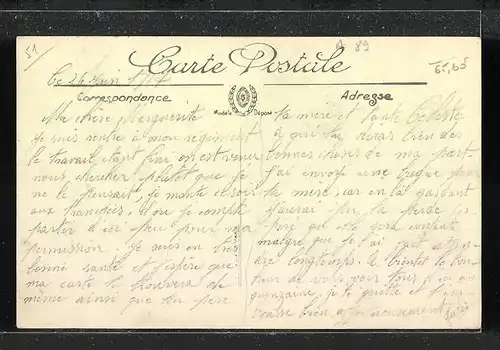 51
89
Carte Postale
Le 26 Juin 1917
Correspondance
Modèle Déposé
Adresse
Ma chère Marguerite
Je suis rentré à mon régiment
le travail étant fini on est venu
nous chercher plutôt que je
ne le pensait, je monte ce soir
aux tranchées. Donc je compte
partir d'ici peu pour ma
permission. Je suis en très
bonne santé et j'espère que
ma carte te trouvera de
même ainsi que ton père
ta mère et tante Céleste
à qui tu diras bien des
bonnes choses de ma part.
J'ai envoyé une bague pour
ta mère, car en la gardant
j'aurai pu la perdre
que elle sera contente
malgré que je l'ai fait attendre
longtemps. A bientôt le bonheur
de vous voir tous
quinzaine, je te quitte et t'embrasse
bien affectueusement